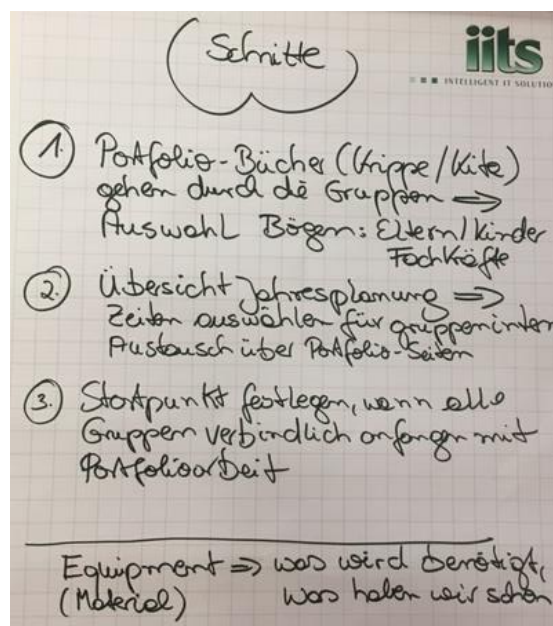 Schritte
iits
INTELLIGENT IT SOLUTIO
1. Portfolio-Bücher (Krippe/Kita)
gehen durch die Gruppen ⇒
Auswahl Bögen: Eltern/Kinder
Fachkräfte
2. Übersicht Jahresplanung ⇒
Zeiten auswählen für gruppenintern
Austausch über Portfolio-Seiten
3. Startpunkt festlegen, wann alle
Gruppen verbindlich anfangen mit
Portfolioarbeit
Equipment ⇒ was wird benötigt,
(Material) was haben wir schon